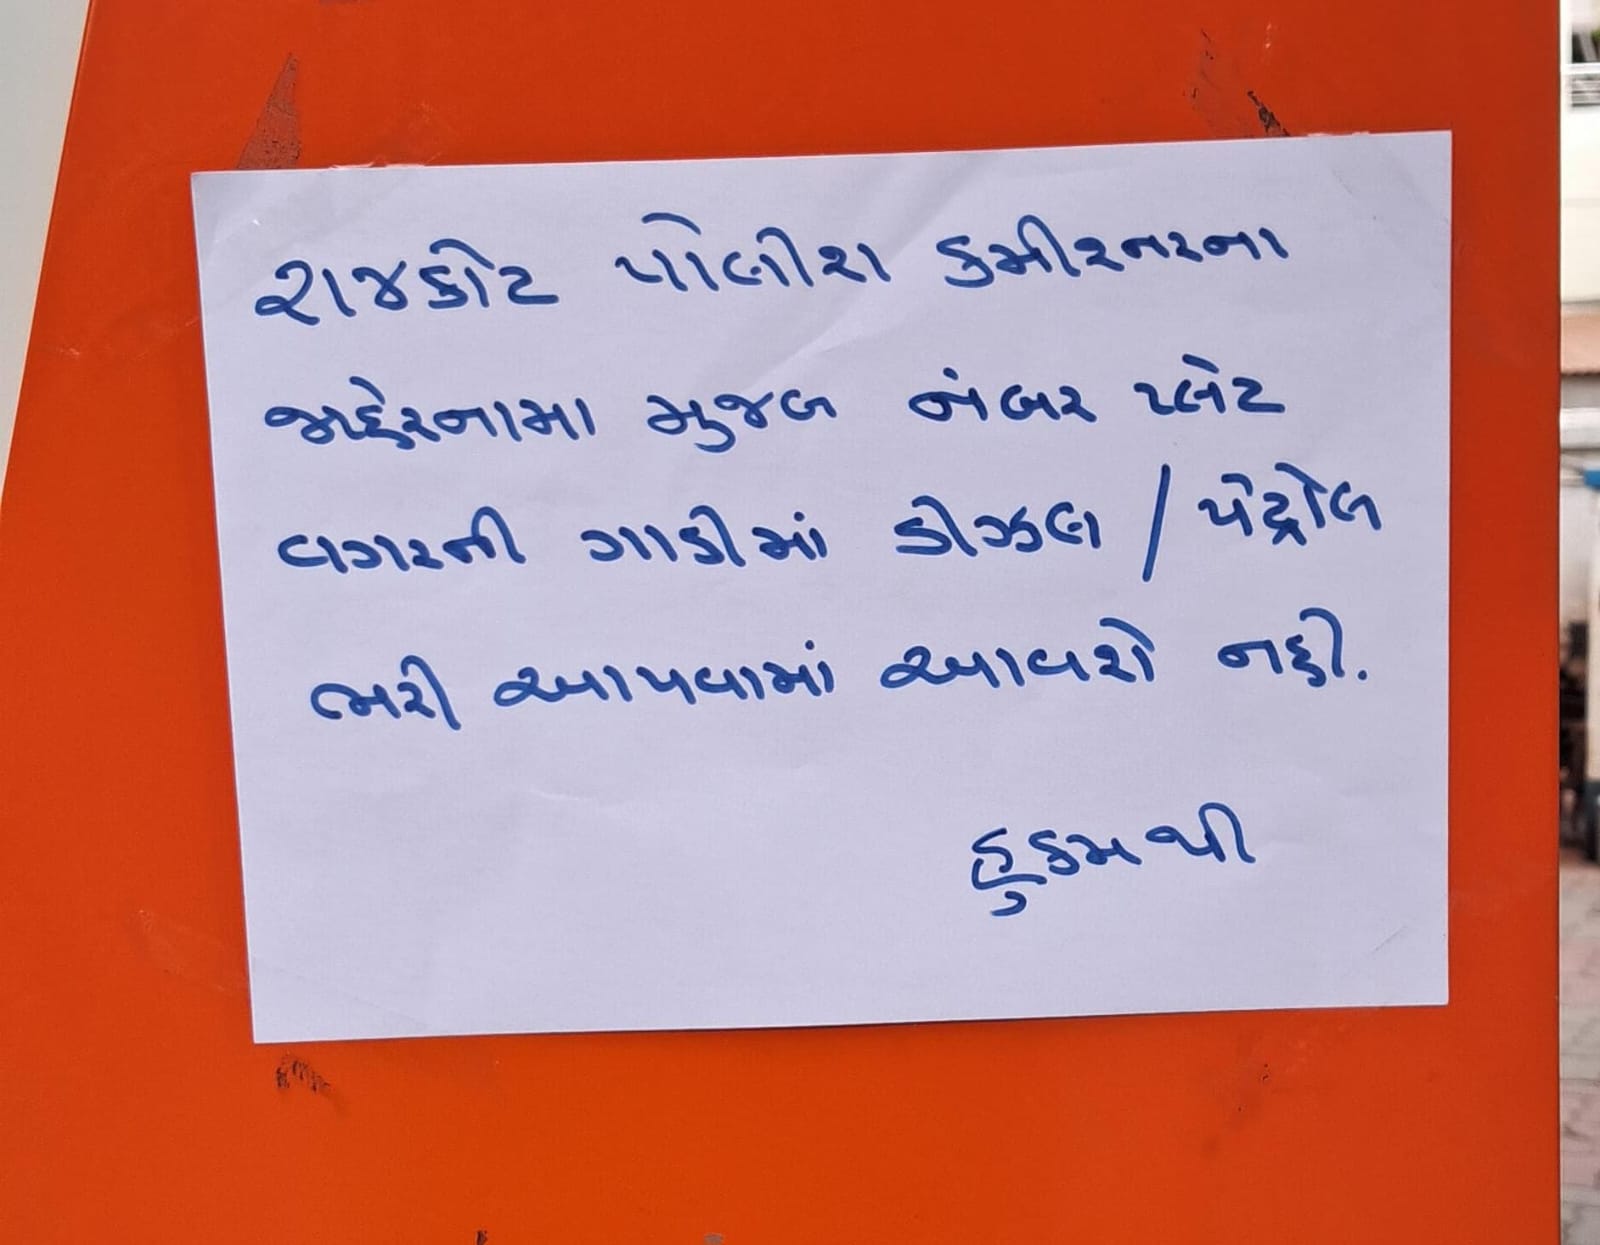 રાજકોટ પોલીશ કમીશ્નરના
જાહેરનામા મુજબ નંબર પ્લેટ
વગરની ગાડીમાં ડીઝલ / પેટ્રોલ
ભરી આપવામાં આવશે નહી.
હુકમથી